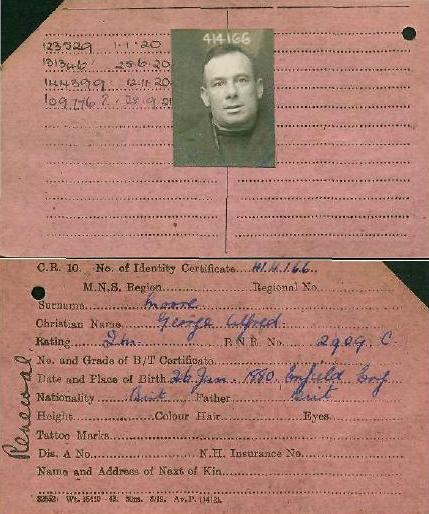 123529 1.1.20
131346 25.6.20
144399 12.11.20
109776? 28.9.21
414166
C.R. 10. No. of Identity Certificate....414166...
M.N.S. Region............Regional No.
Surname Moore
Christian Name George Alfred.
Rating 2m. R.N.R. No. 2909 C.
No. and Grade of B/T Certificate
Date and Place of Birth 26 Jan. 1880. Enfield Eng
Nationality Brit Father Brit
Height............Colour Hair............Eyes
Tattoo Marks
Dis. A No............N.H. Insurance No.
Name and Address of Next of Kin
Renewal